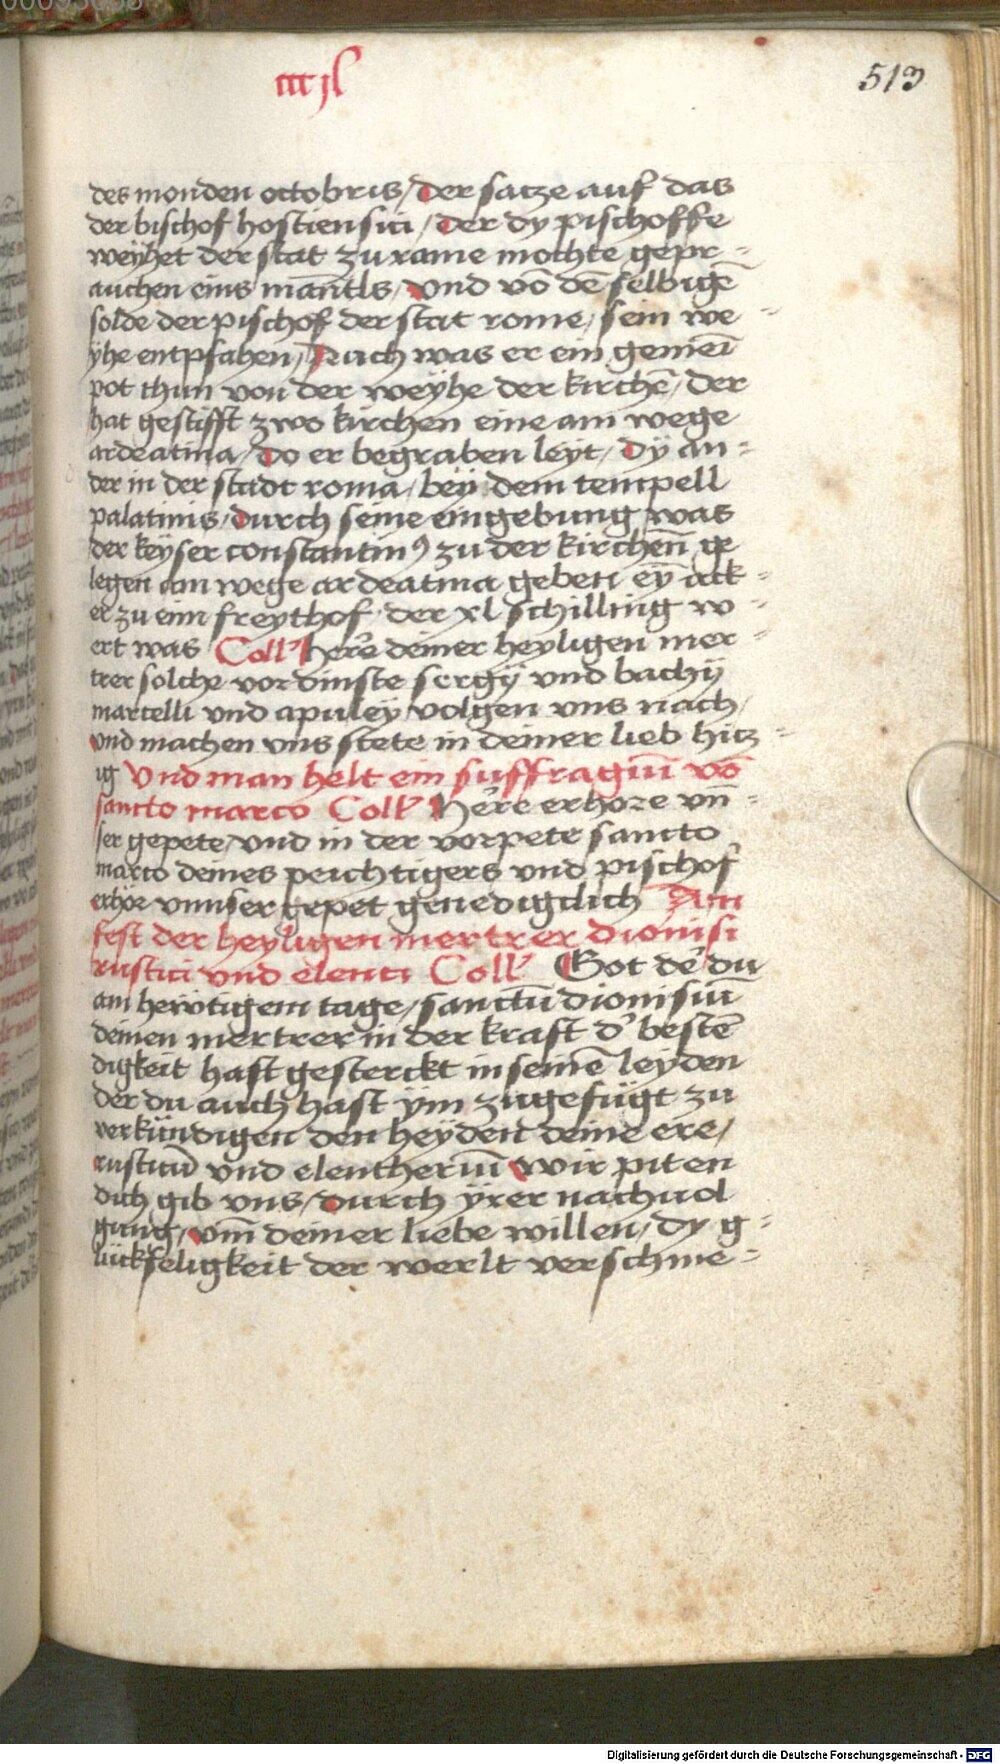 cccjl
513
des monden octobris / der satze auf das
der bischof hostiensici / der dy pischoffe
weyhet der stat zu rame mochte gepr-
auchen eins mantls / vnd vō dē selbigē
solde der pischof der stat rome / sein we-
yhe entpfahen / Nach was er ein gemeī
pot thun von der weyhe der kirchē / der
hat gestifft zwo kirchen eine am wege
ardeatina / do er begraben leyt / dÿ an-
der in der stadt roma / beÿ dem tempell
palatinis / durch seine eingebung was
der keÿser constantinꝰ zu der kirchen̄ ge
legen am wege ardeatina geben eȳ ack-
er zu eim freythof der xl schilling w-
ert was Coll' here deiner heyligen mer-
trer solche vordinste sergÿ vnd bachÿ
martelli vnd apuleÿ volgen vns nach /
vnd machen vns stete in deiner lieb hitz-
ig Vnd man helt ein suffragiū vō
sancto marco Coll' Here erhore vn̄-
ser gepete / vnd in der vorpete sancto
marco deines peichtigers vnd pischof
erhör vnnser gepet genedigclich Am
fest der heyligen mertrer dionisi
rustici vnd elenti Coll' Got de' du
am hewtigem tage / sanctū dionisiū
deinen mertrer in der kraft d' bestē
digkeit hast gesterckt in seinē leyden
der du auch hast ÿm zugefügt zu
verkündigen den heÿden deine ere /
rusticū vnd elentheriū wir piten
dich gib vns / durch ÿrer nachuol
gung / vm̄ deiner liebe willen / dy g-
lückseligkeit der werlt verschme-
Digitalisierung gefördert durch die Deutsche Forschungsgemeinschaft - DFG